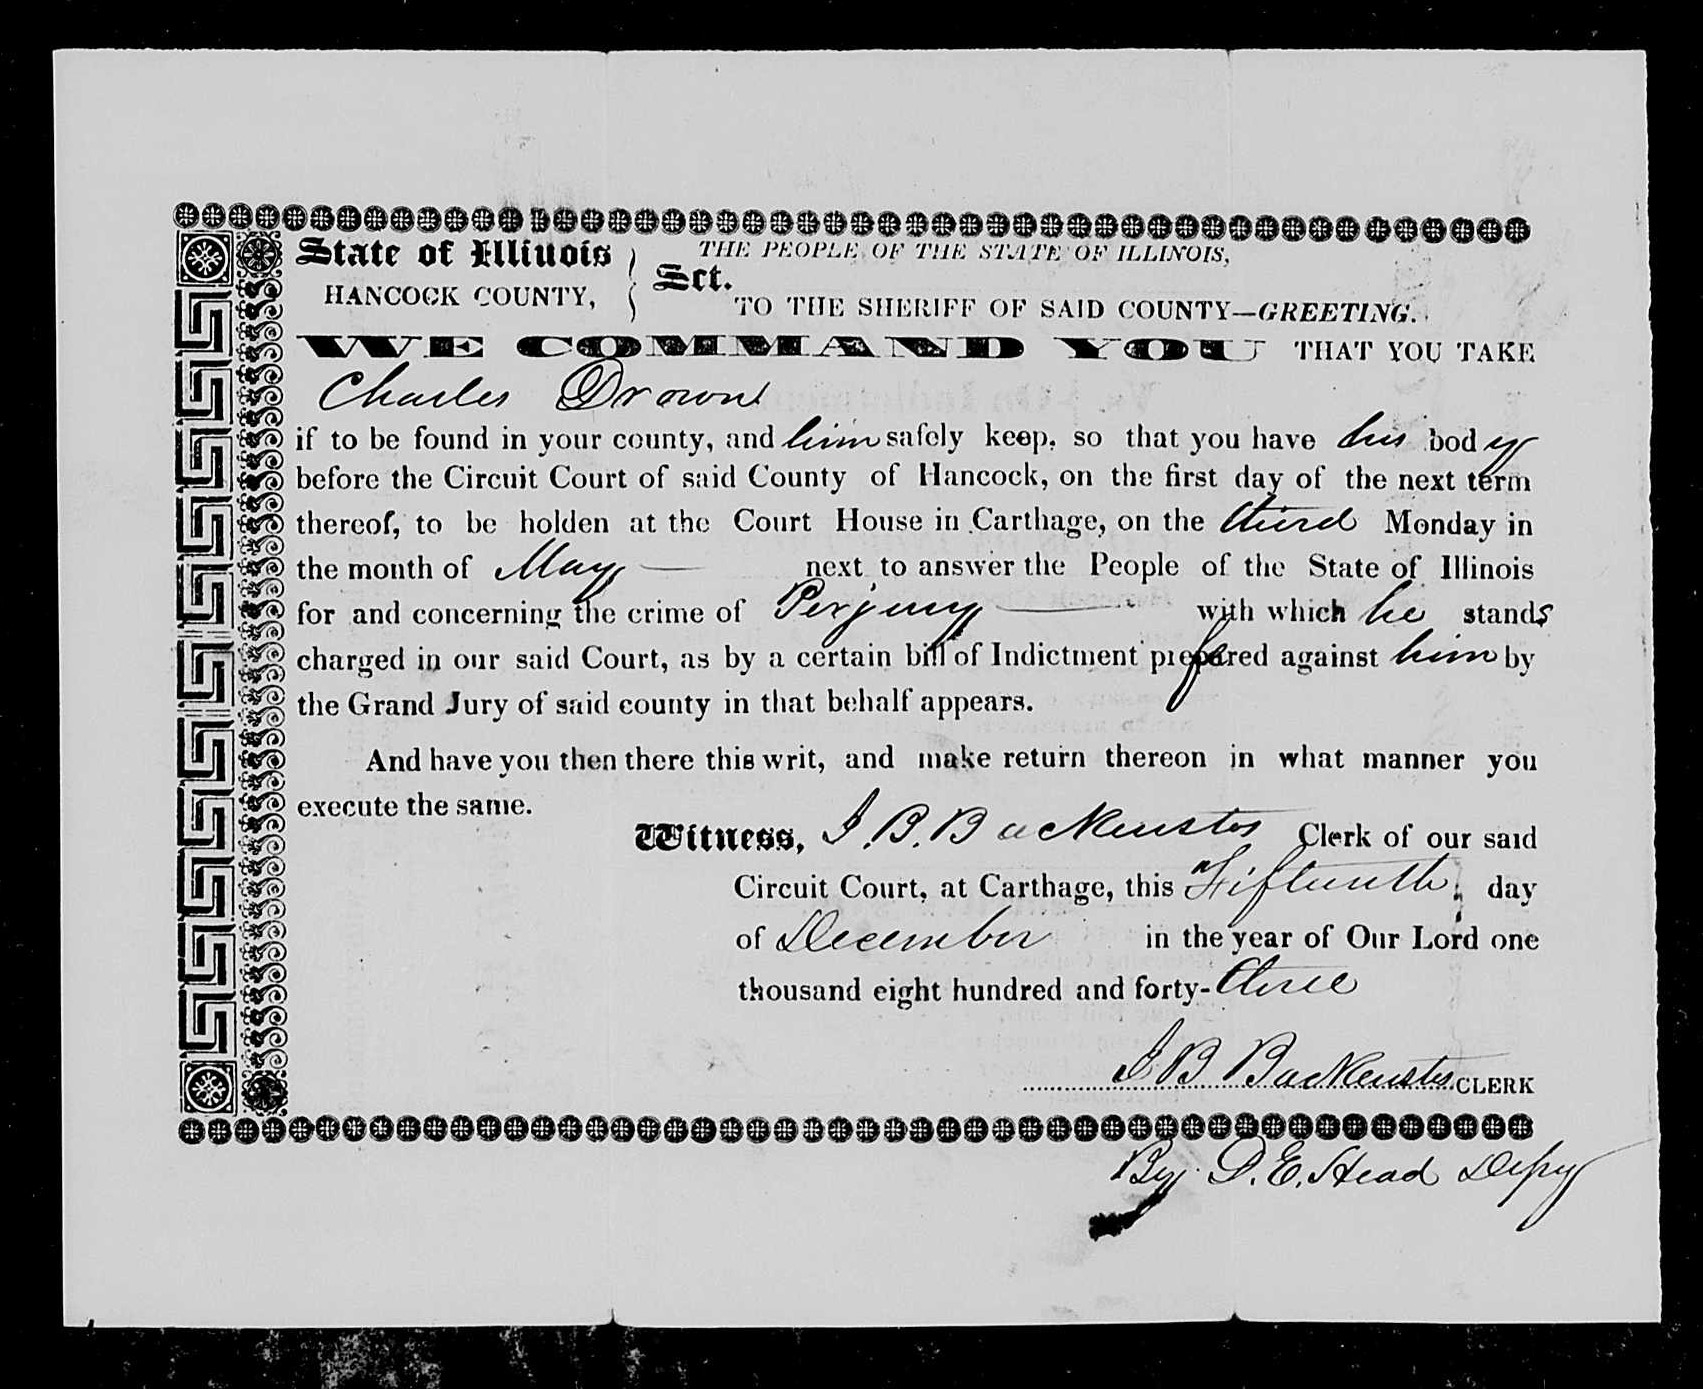 State of Illinois
HANCOCK COUNTY,
Sct.
THE PEOPLE OF THE STATE OF ILLINOIS,
TO THE SHERIFF OF SAID COUNTY—GREETING.
WE COMMAND YOU THAT YOU TAKE
Charles Drown
if to be found in your county, and him safely keep, so that you have his body
before the Circuit Court of said County of Hancock, on the first day of the next term
thereof, to be holden at the Court House in Carthage, on the third Monday in
the month of May — next to answer the People of the State of Illinois
for and concerning the crime of Perjury — with which he stands
charged in our said Court, as by a certain bill of Indictment prefered against him by
the Grand Jury of said county in that behalf appears.
And have you then there this writ, and make return thereon in what manner you
execute the same.
Witness, J. B. Backenstos Clerk of our said
Circuit Court, at Carthage, this Fifteenth day
of December in the year of Our Lord one
thousand eight hundred and forty-three
J B Backenstos CLERK
By D. E. Head Depy